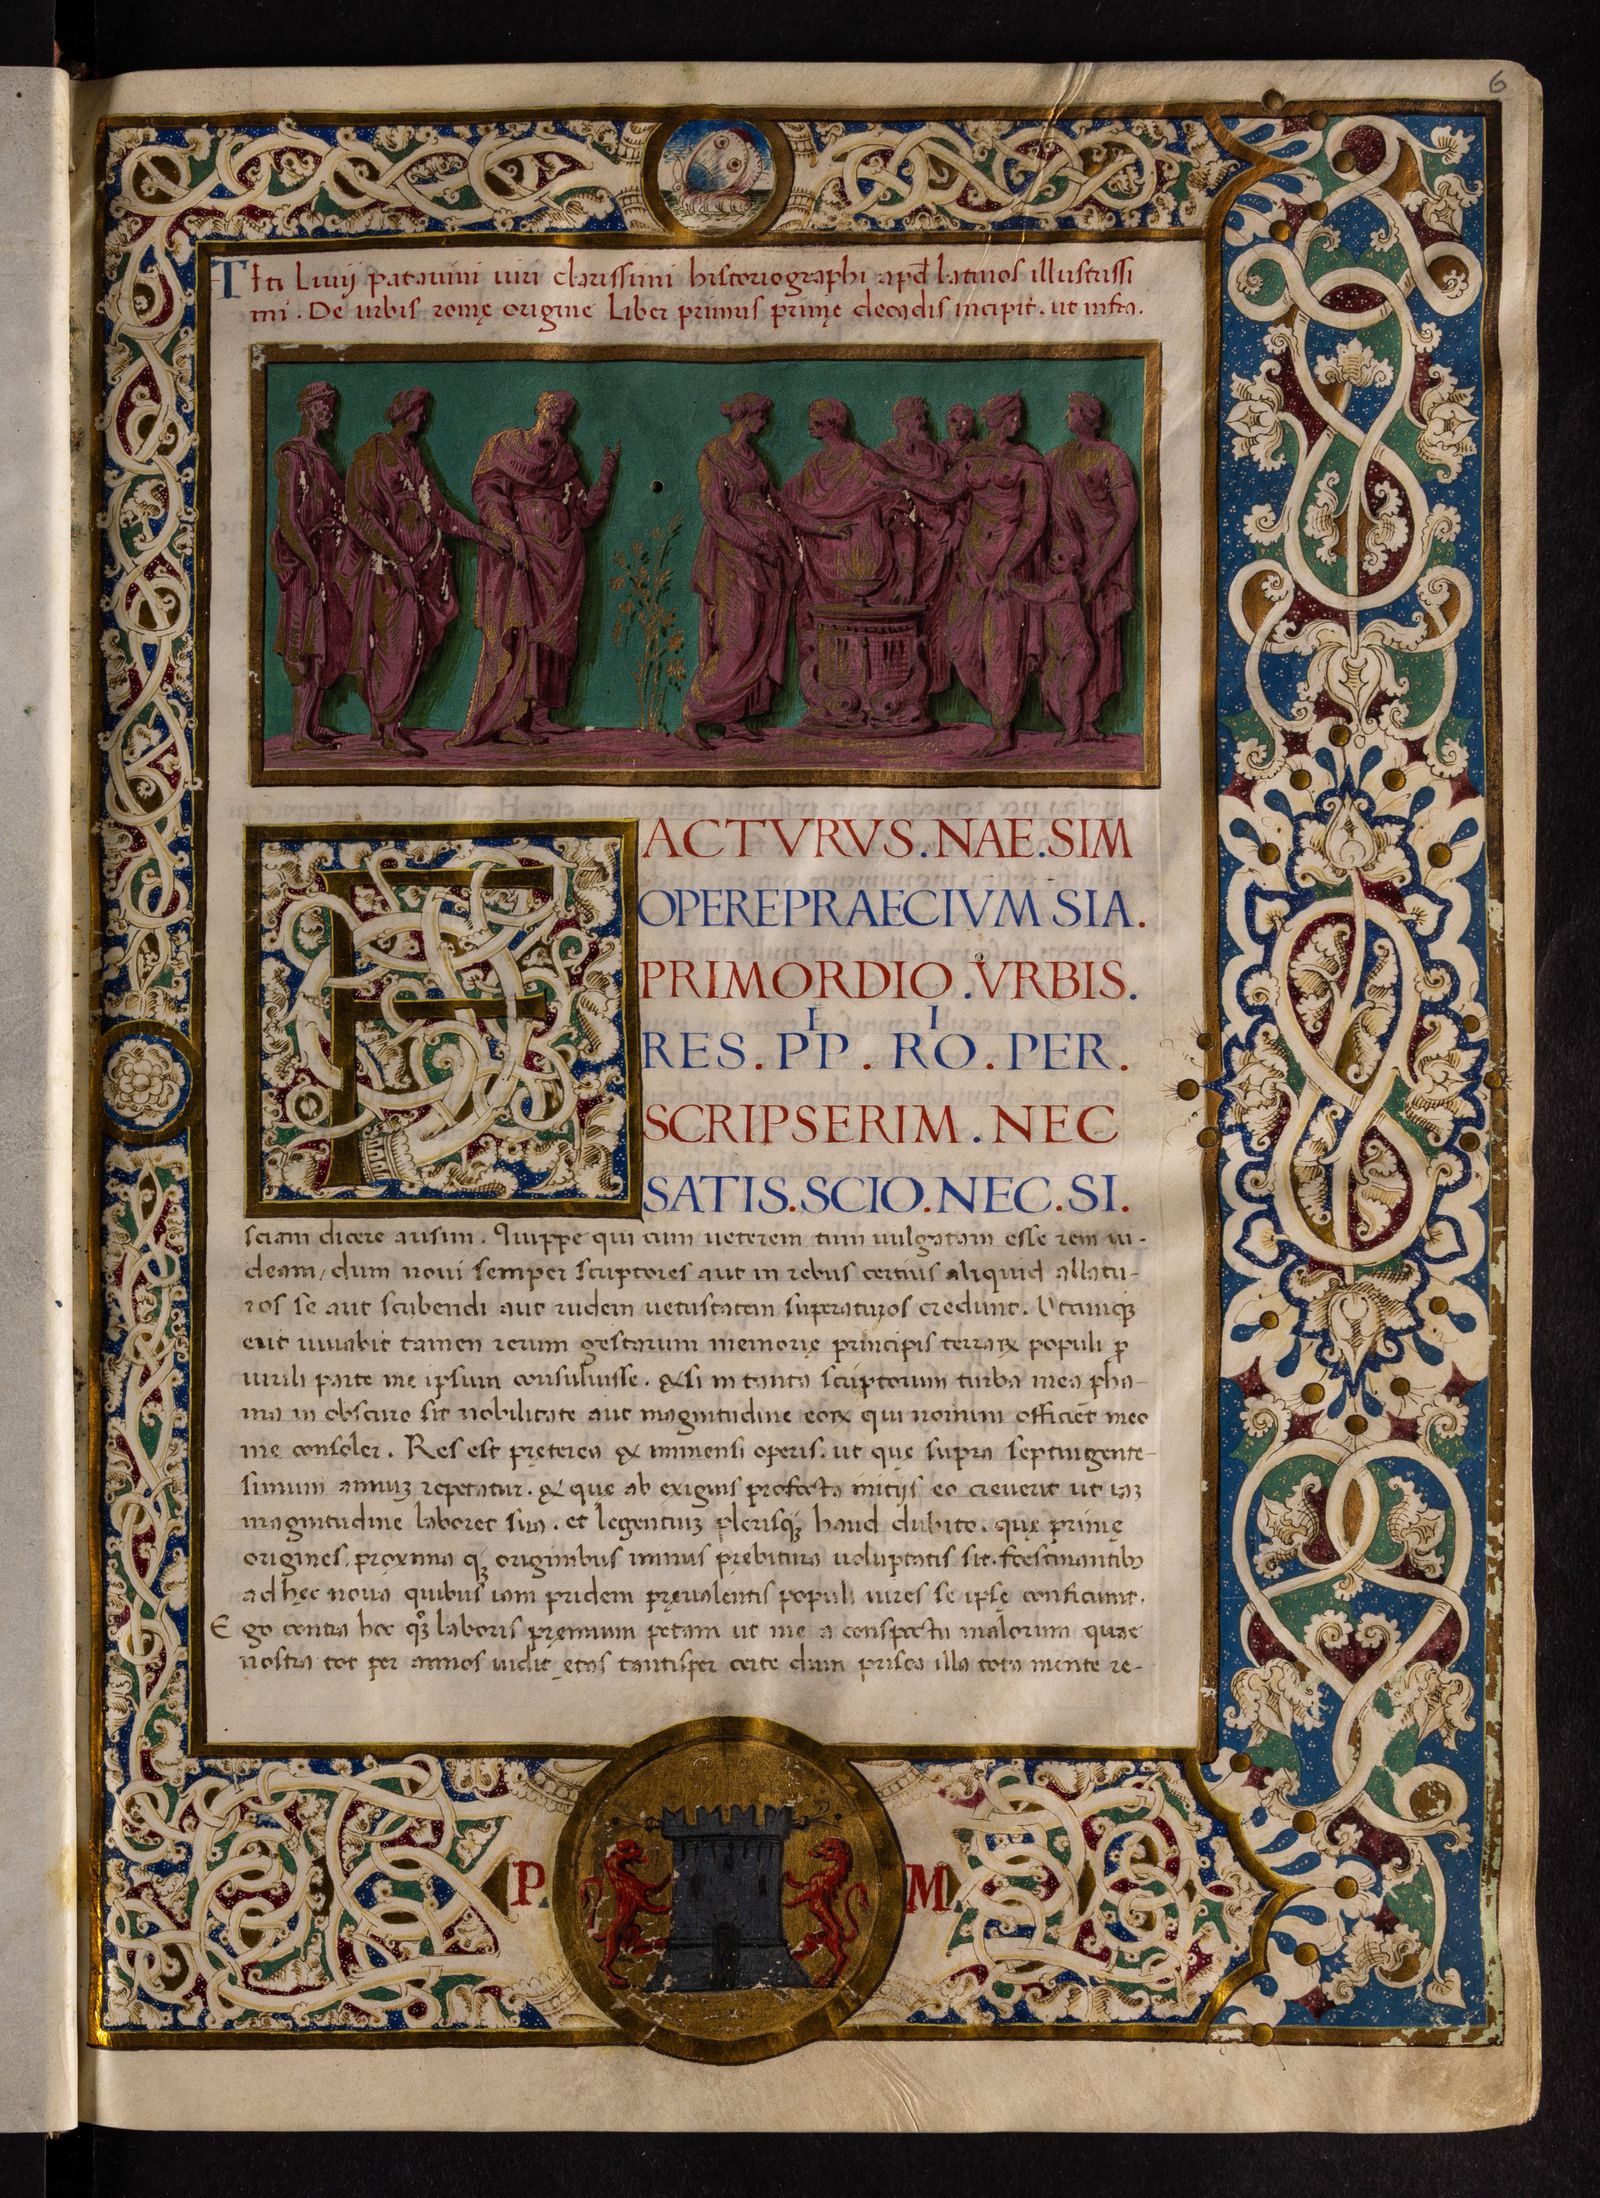 6
Titi Liuij patauini uiri clarissimi historiographi apđ latinos illustrissi
mi . De urbis romę origine Liber primus prime decadis incipit . ut infra.
FACTVRVS.NAE.SIM
OPEREPRAECIVM SIA.
PRIMORDIO.VRBIS.
I I
RES.PP.RO.PER.
SCRIPSERIM.NEC
SATIS.SCIO.NEC.SI.
sciam dicere ausim . Quippe qui cum ueterem tum uulgatam esse rem ui-
deam, dum noui semper scriptores aut in rebus certius aliquid allatu-
ros se aut scribendi aut rudem uetustatem superaturos credunt. Vtcunqꝫ
erit iuuabit tamen rerum gestarum memorię principis terraꝝ populi ꝓ
uirili parte me ipsum consuluisse. & si in tanta scriptorum turba mea pha-
ma in obscuro sit nobilitate aut magnitudine eoꝝ qui nomini officiēt meo
me consoler. Res est pręterea & immensi operis. ut quę supra septingente-
simum annuꝫ repetatur. & que ab exiguis profecta initijs eo creuerit ut iaꝫ
magnitudine laboret sua. et legentiuꝫ plerisqꝫ haud dubito. quę primę
origines. proxima qꝫ originibus minus prębitura uoluptatis sit. festinantibꝰ
ad hęc noua quibus iam pridem pręualentis populi uires se ipsę conficiunt.
Ego contra hoc qͦꝫ laboris pręmium petam ut me a conspectu malorum quae
nostra tot per annos uidit ętas tantisper certe dum prisca illa tota mente re-
P. M.